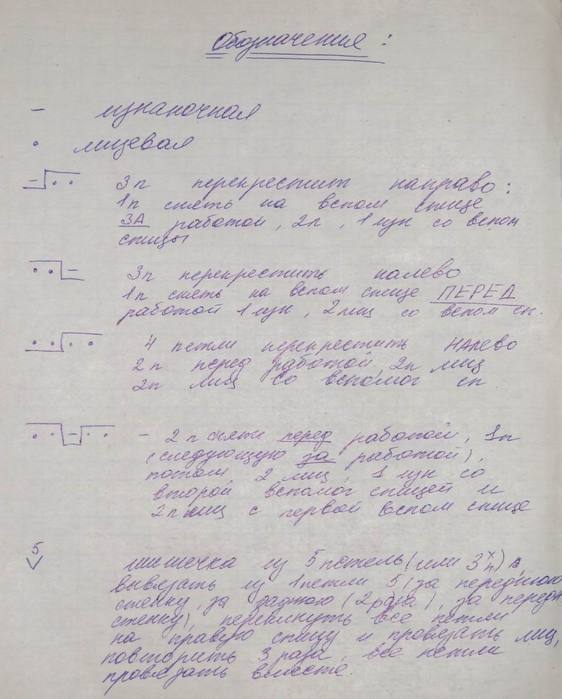 Обозначения:
– изнаночная
• лицевая
3п перекрестит направо:
1п снять на вспом спице
ЗА работой, 2л, 1изн со вспом
спицы
3п перекрестить налево
1п снять на вспом спице ПЕРЕД
работой 1изн, 2лиц со вспом сп.
4 петли перекрестить НАлево
2п перед работой, 2п лиц
2п лиц со вспомог сп
– 2п сняти перед работой, 1п
(следующую за работой),
потом 2лиц, 1изн со
второй вспомог спицей и
2п лиц с первой вспом спице
5 шишечка из 5 петель (или 3)
вывязать из 1петли 5 (за переднюю
стенку, за заднюю (2раза), за передн
стенку), перекинуть все петли
на правую спицу и провязать лиц,
повторить 3раза, все петли
провязать вместе.